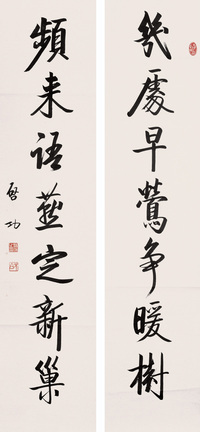 幾處早鶯争暖樹
頻来語燕定新巢
啓功